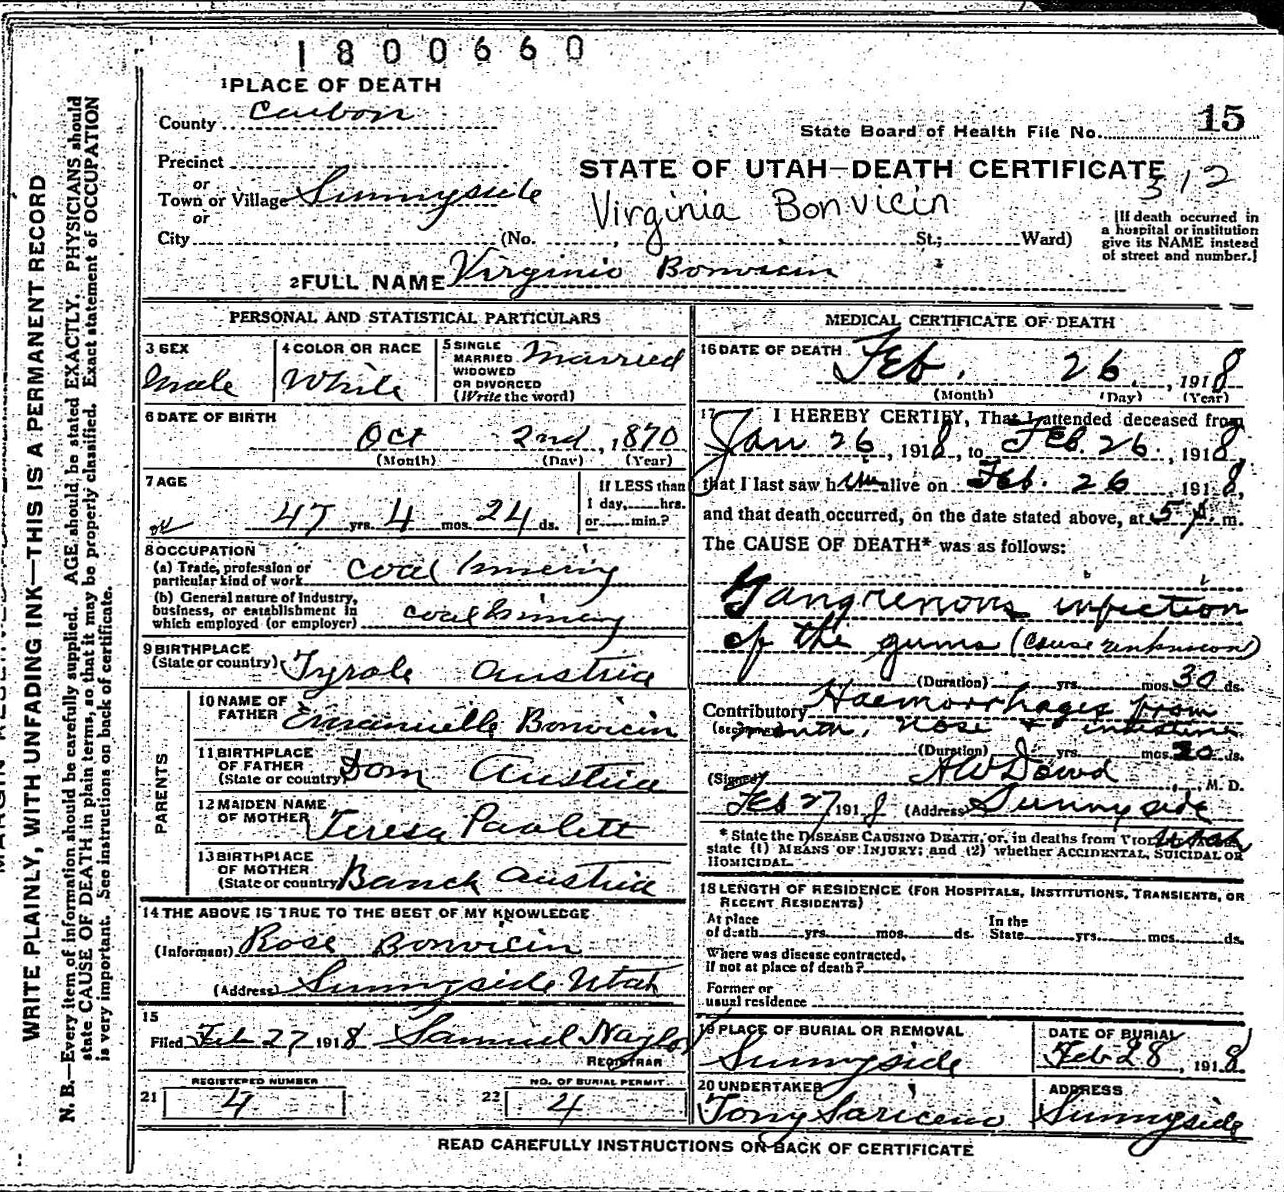 1800660
1 PLACE OF DEATH
County Carbon
State Board of Health File No. 15
Precinct
or
Town or Village Sunnyside
or
City (No. , St.; Ward)
STATE OF UTAH—DEATH CERTIFICATE
312
Virginia Bonvicin
[If death occurred in
a hospital or institution
give its NAME instead
of street and number.]
2 FULL NAME Virginio Bonvicin
PERSONAL AND STATISTICAL PARTICULARS
3 SEX
Male
4 COLOR OR RACE
White
5 SINGLE
MARRIED
WIDOWED
OR DIVORCED
(Write the word)
Married
6 DATE OF BIRTH
Oct 2nd, 1870
(Month) (Day) (Year)
7 AGE
47 yrs. 4 mos. 24 ds.
If LESS than
1 day, hrs.
or min.?
8 OCCUPATION
(a) Trade, profession or
particular kind of work coal mining
(b) General nature of Industry,
business, or establishment in
which employed (or employer) coal mining
9 BIRTHPLACE
(State or country) Tyrole Austria
PARENTS
10 NAME OF
FATHER Emanuelle Bonvicin
11 BIRTHPLACE
OF FATHER
(State or country) Dom Austria
12 MAIDEN NAME
OF MOTHER Teresa Paolett
13 BIRTHPLACE
OF MOTHER
(State or country) Banck Austria
14 THE ABOVE IS TRUE TO THE BEST OF MY KNOWLEDGE
(Informant) Rose Bonvicin
(Address) Sunnyside Utah
15
Filed Feb 27 1918 Samuel Naylor
REGISTRAR
REGISTERED NUMBER
21 4
NO. OF BURIAL PERMIT
22 4
MEDICAL CERTIFICATE OF DEATH
16 DATE OF DEATH
Feb. 26, 1918
(Month) (Day) (Year)
17 I HEREBY CERTIFY, That I attended deceased from
Jan 26, 1918, to Feb. 26., 1918,
that I last saw him alive on Feb. 26 1918,
and that death occurred, on the date stated above, at 5 m.
The CAUSE OF DEATH* was as follows:
Gangrenous infection
of the gums (cause unknown)
(Duration) yrs. mos. 30 ds.
Contributory Haemorrhages from
mouth, nose & intestine
(Duration) yrs. mos. 20 ds.
(Signed) A W Dowd, M. D.
Feb 27 1918 (Address) Sunnyside
Utah
* State the DISEASE CAUSING DEATH, or, in deaths from
state (1) MEANS OF INJURY; and (2) whether ACCIDENTAL, SUICIDAL OR
HOMICIDAL.
18 LENGTH OF RESIDENCE (FOR HOSPITALS, INSTITUTIONS, TRANSIENTS, OR
RECENT RESIDENTS)
At place
of death yrs. mos. ds.
In the
State yrs. mos. ds.
Where was disease contracted,
if not at place of death?
Former or
usual residence
19 PLACE OF BURIAL OR REMOVAL
Sunnyside
DATE OF BURIAL
Feb 28, 1918
20 UNDERTAKER
Tony Sariceno
ADDRESS
Sunnyside
READ CAREFULLY INSTRUCTIONS ON BACK OF CERTIFICATE
WRITE PLAINLY, WITH UNFADING INK—THIS IS A PERMANENT RECORD
N. B.—Every item of information should be carefully supplied. AGE should be stated EXACTLY. PHYSICIANS should
state CAUSE OF DEATH in plain terms, so that it may be properly classified. Exact statement of OCCUPATION
is very important. See instructions on back of certificate.